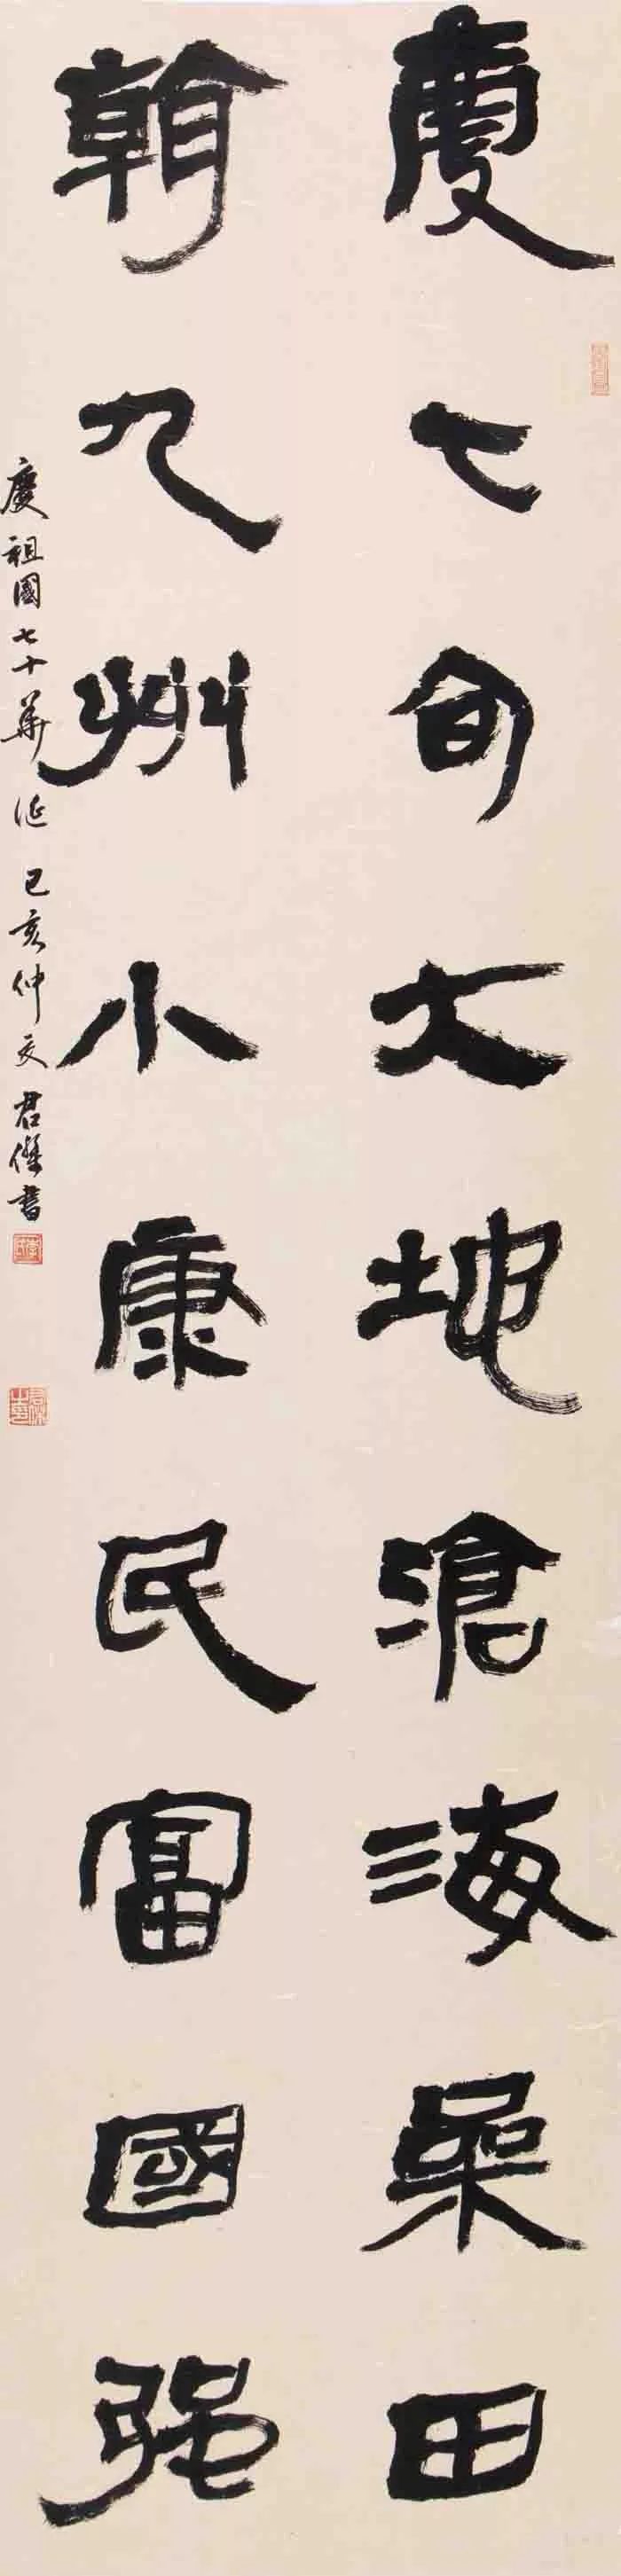 慶七旬大地滄海桑田
朝九州小康民富國强
慶祖國七十華誕 己亥仲夏 君傑書